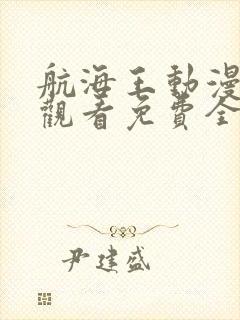 航海王動漫
觀看免費全
尹建盛